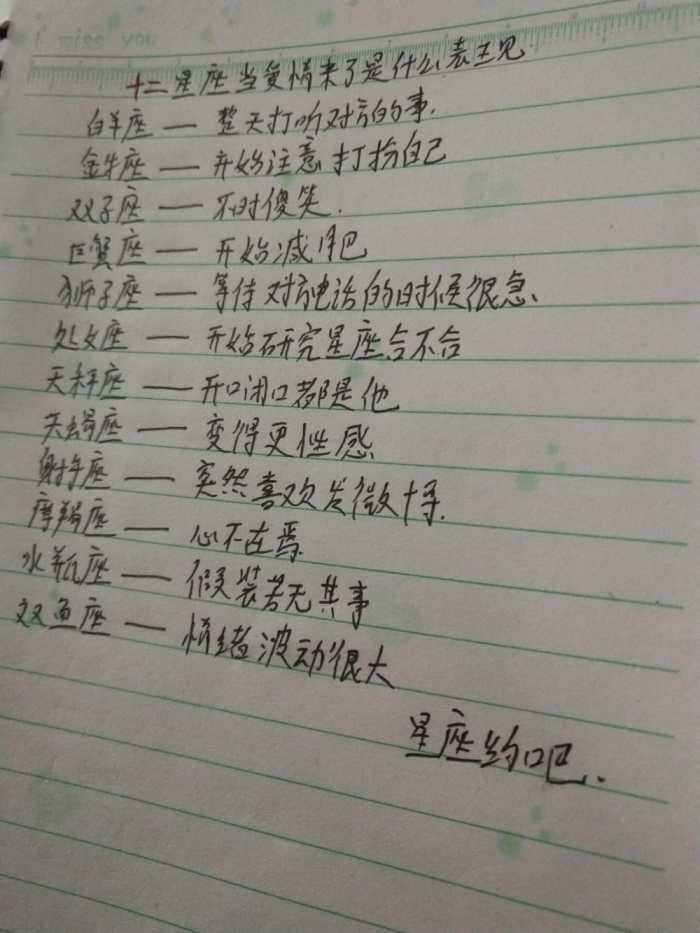 十二星座当爱情来了是什么表现
白羊座 — 整天打听对方的事.
金牛座 — 开始注意打扮自己
双子座 — 不时傻笑.
巨蟹座 — 开始减肥
狮子座 — 等待对方电话的时候很急、
处女座 — 开始研究星座合不合
天秤座 — 开口闭口都是他
天蝎座 — 变得更性感
射手座 — 突然喜欢发微博.
摩羯座 — 心不在焉
水瓶座 — 假装若无其事
双鱼座 — 情绪波动很大
星座约吧.